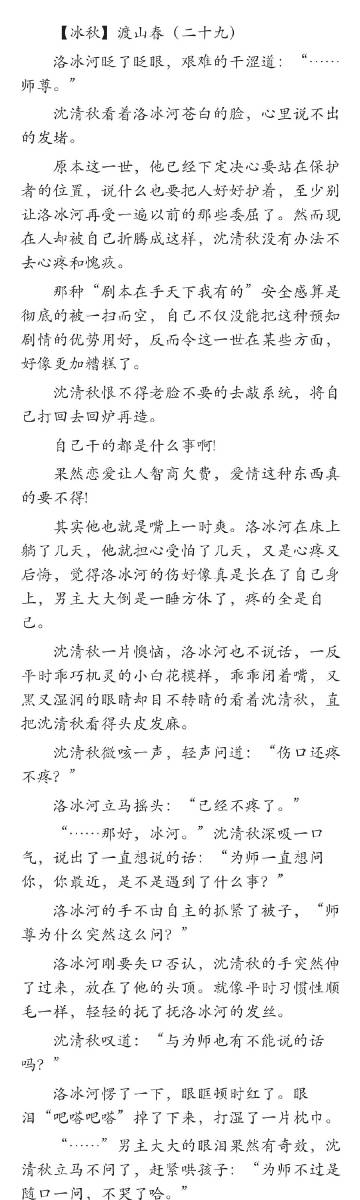 【冰秋】渡山春（二十九）
洛冰河眨了眨眼，艰难的干涩道：“……
师尊。”
沈清秋看着洛冰河苍白的脸，心里说不出
的发堵。
原本这一世，他已经下定决心要站在保护
者的位置，说什么也要把人好好护着，至少别
让洛冰河再受一遍以前的那些委屈了。然而现
在人却被自己折腾成这样，沈清秋没有办法不
去心疼和愧疚。
那种“剧本在手天下我有的”安全感算是
彻底的被一扫而空，自己不仅没能把这种预知
剧情的优势用好，反而令这一世在某些方面，
好像更加糟糕了。
沈清秋恨不得老脸不要的去敲系统，将自
己打回去回炉再造。
自己干的都是什么事啊!
果然恋爱让人智商欠费，爱情这种东西真
的要不得!
其实他也就是嘴上一时爽。洛冰河在床上
躺了几天，他就担心受怕了几天，又是心疼又
后悔，觉得洛冰河的伤好像真是长在了自己身
上，男主大大倒是一睡方休了，疼的全是自
己。
沈清秋一片懊恼，洛冰河也不说话，一反
平时乖巧机灵的小白花模样，乖乖闭着嘴，又
黑又湿润的眼睛却目不转睛的看着沈清秋，直
把沈清秋看得头皮发麻。
沈清秋微咳一声，轻声问道：“伤口还疼
不疼？”
洛冰河立马摇头：“已经不疼了。”
“……那好，冰河。”沈清秋深吸一口
气，说出了一直想说的话：“为师一直想问
你，你最近，是不是遇到了什么事？”
洛冰河的手不由自主的抓紧了被子，“师
尊为什么突然这么问？”
洛冰河刚要矢口否认，沈清秋的手突然伸
了过来，放在了他的头顶。就像平时习惯性顺
毛一样，轻轻的抚了抚洛冰河的发丝。
沈清秋叹道：“与为师也有不能说的话
吗？”
洛冰河愣了一下，眼眶顿时红了。眼
泪“吧嗒吧嗒”掉了下来，打湿了一片枕巾。
“……”男主大大的眼泪果然有奇效，沈
清秋立马不问了，赶紧哄孩子：“为师不过是
随口一问，不哭了哈。”